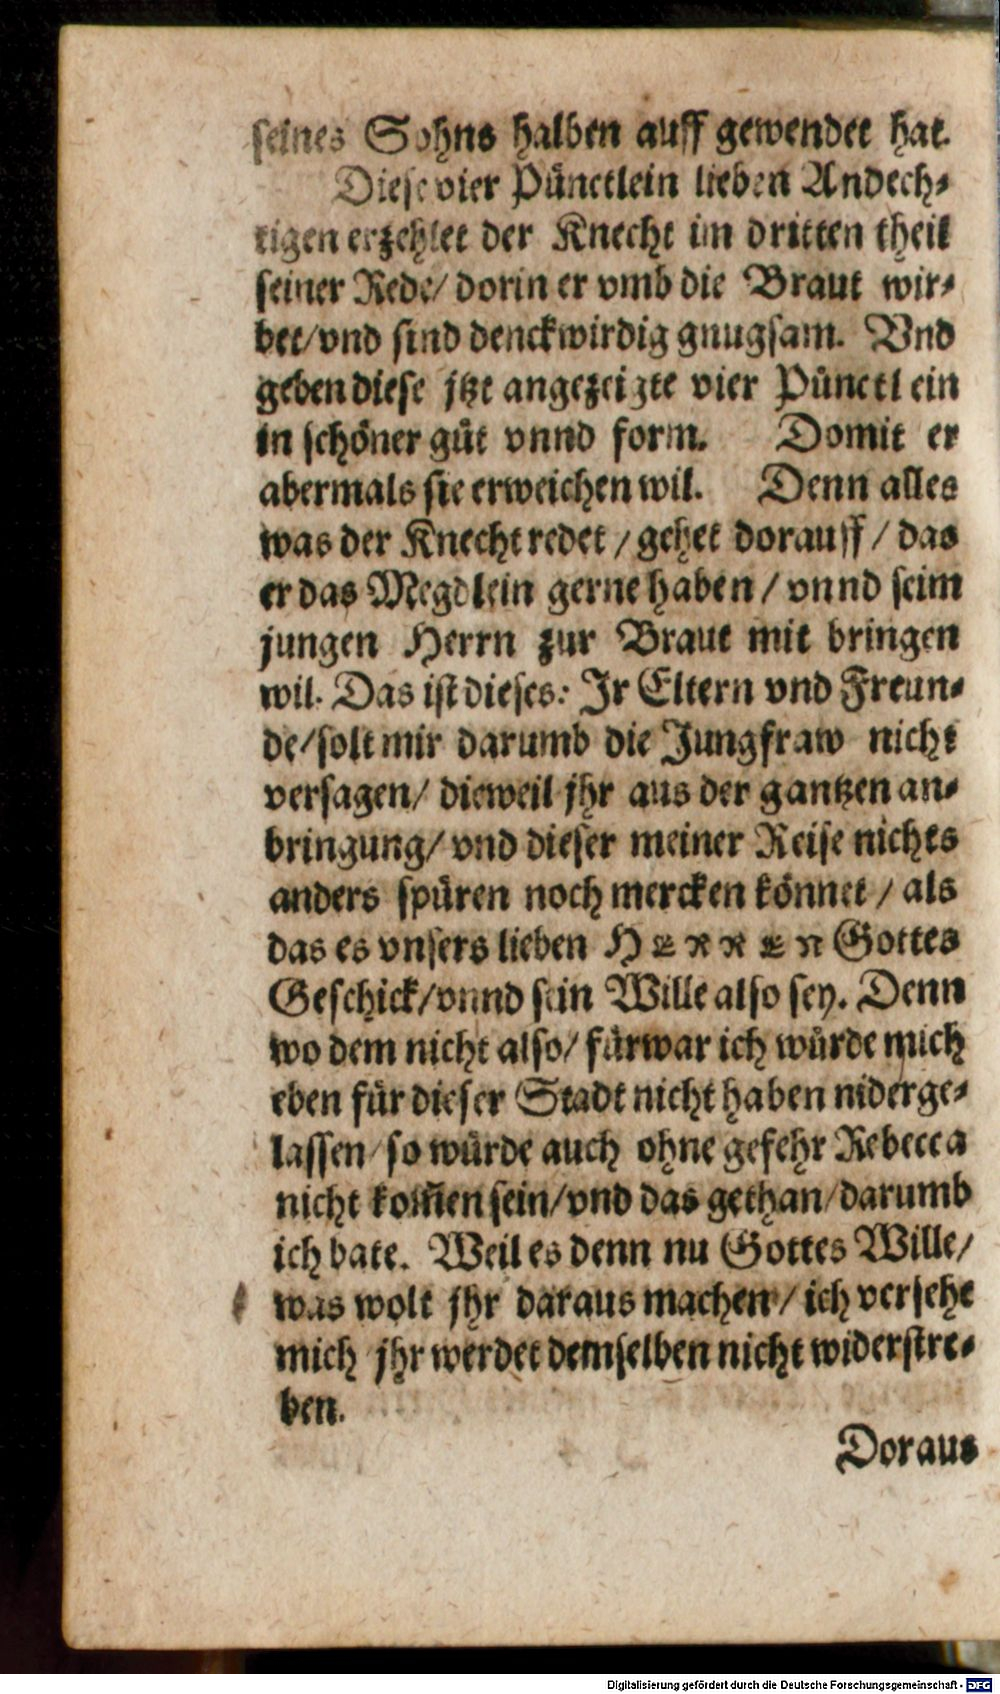 seines Sohns halben auff gewendet hat.
Diese vier Pünctlein lieben Andech⸗
tigen erzehlet der Knecht im dritten theil
seiner Rede/ dorin er vmb die Braut wir⸗
bet/vnd sind denckwirdig gnugsam. Vnd
geben diese jtzt angezeigte vier Pünctlein
in schöner güt vnnd form. Domit er
abermals sie erweichen wil. Denn alles
was der Knecht redet / gehet dorauff / das
er das Megdlein gerne haben / vnnd seim
jungen Herrn zur Braut mit bringen
wil. Das ist dieses: Jr Eltern vnd Freun⸗
de/solt mir darumb die Jungfraw nicht
versagen/ dieweil jhr aus der gantzen an⸗
bringung/ vnd dieser meiner Reise nichts
anders spüren noch mercken könnet / als
das es vnsers lieben HERREN Gottes
Geschick/vnnd sein Wille also sey. Denn
wo dem nicht also/ fürwar ich würde mich
eben für dieser Stadt nicht haben niderge⸗
lassen/so würde auch ohne gefehr Rebecca
nicht kom̃en sein/vnd das gethan/darumb
ich bate. Weil es denn nu Gottes Wille/
was wolt jhr daraus machen/ ich versehe
mich jhr werdet demselben nicht widerstre⸗
ben.
Doraus
Digitalisierung gefördert durch die Deutsche Forschungsgemeinschaft - DFG